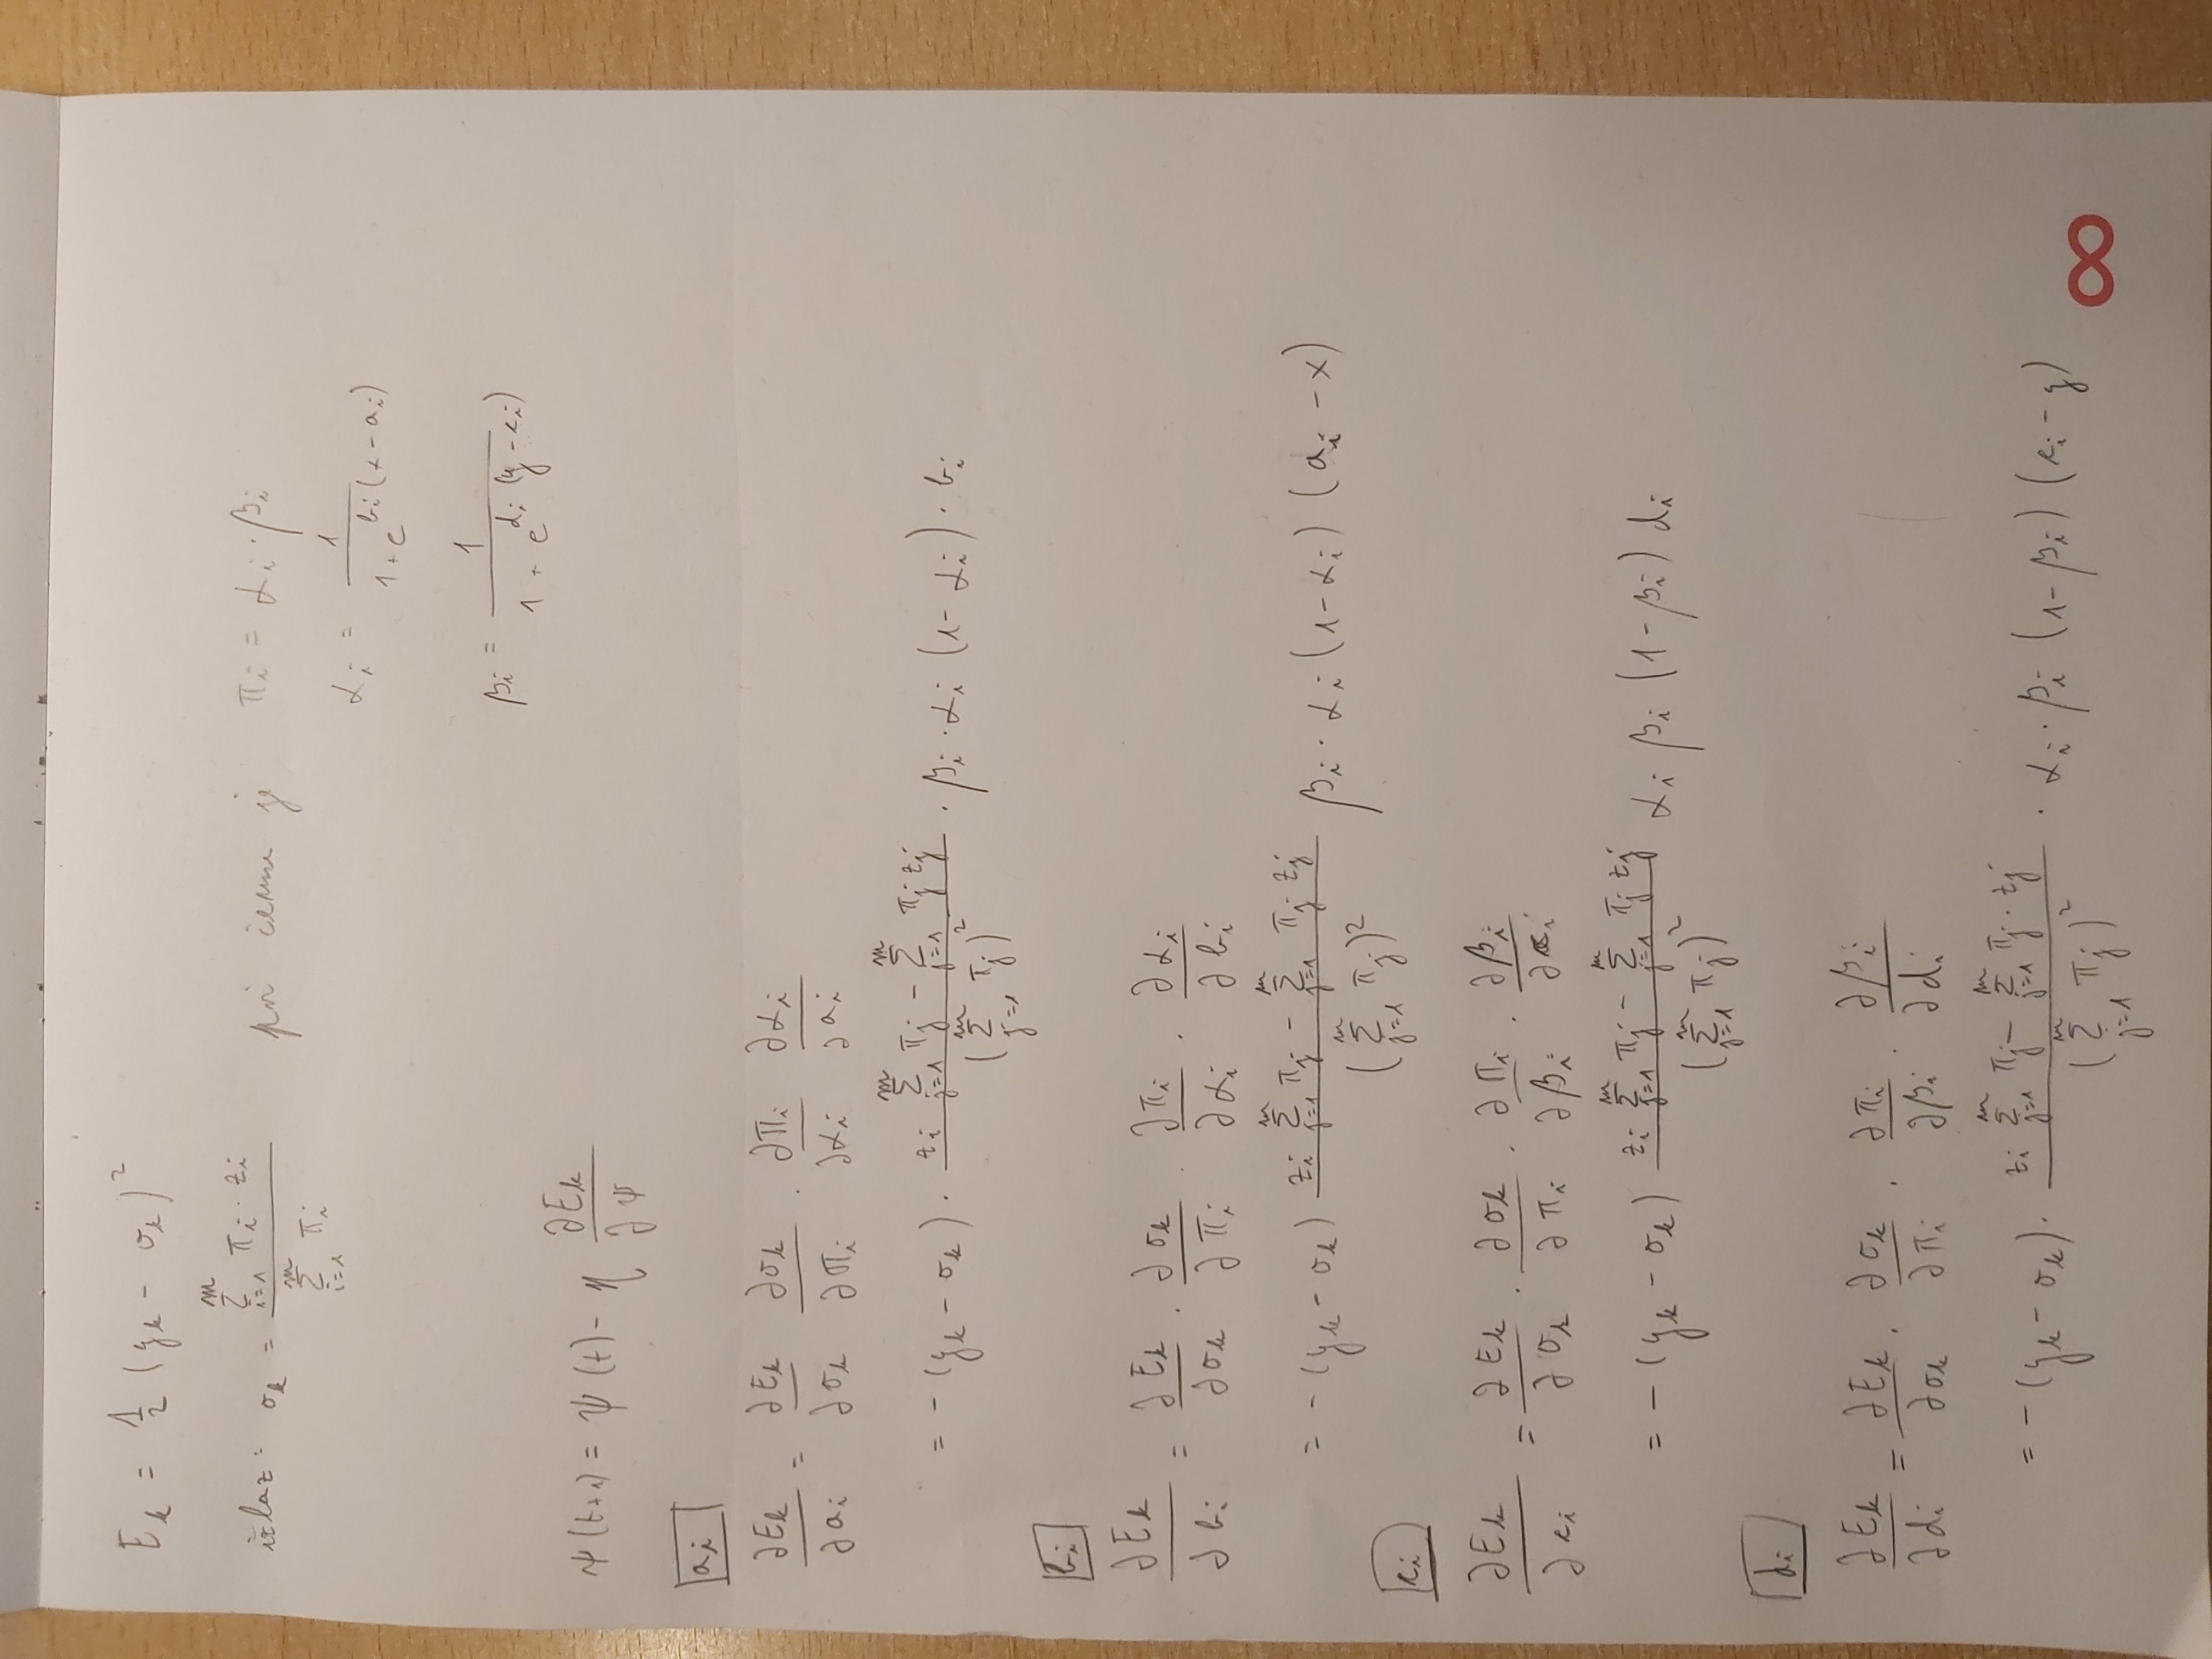 E_k = 1/2 (y_k - o_k)^2
izlaz: o_k = (∑_{i=1}^{m} π_i · z_i) / (∑_{i=1}^{m} π_i) pri čemu je π_i = α_i · β_i
α_i = 1 / (1 + e^{b_i (x - a_i)})
β_i = 1 / (1 + e^{d_i (y - c_i)})
ψ(t+1) = ψ(t) - η ∂E_k/∂ψ
a_i
∂E_k/∂a_i = ∂E_k/∂o_k ∂o_k/∂π_i · ∂π_i/∂α_i ∂α_i/∂a_i
= -(y_k - o_k) · (z_i ∑_{j=1}^{m} π_j - ∑_{j=1}^{m} π_j z_j) / (∑_{j=1}^{m} π_j)^2 · β_i · α_i (1 - α_i) · b_i
b_i
∂E_k/∂b_i = ∂E_k/∂o_k · ∂o_k/∂π_i · ∂π_i/∂α_i · ∂α_i/∂b_i
= -(y_k - o_k) (z_i ∑_{j=1}^{m} π_j - ∑_{j=1}^{m} π_j z_j) / (∑_{j=1}^{m} π_j)^2 β_i · α_i (1 - α_i) (a_i - x)
c_i
∂E_k/∂c_i = ∂E_k/∂o_k · ∂o_k/∂π_i · ∂π_i/∂β_i · ∂β_i/∂c_i
= -(y_k - o_k) (z_i ∑_{j=1}^{m} π_j - ∑_{j=1}^{m} π_j z_j) / (∑_{j=1}^{m} π_j)^2 α_i β_i (1 - β_i) d_i
d_i
∂E_k/∂d_i = ∂E_k/∂o_k · ∂o_k/∂π_i · ∂π_i/∂β_i · ∂β_i/∂d_i
= -(y_k - o_k) · (z_i ∑_{j=1}^{m} π_j - ∑_{j=1}^{m} π_j · z_j) / (∑_{j=1}^{m} π_j)^2 · α_i · β_i (1 - β_i) (c_i - y)
∞